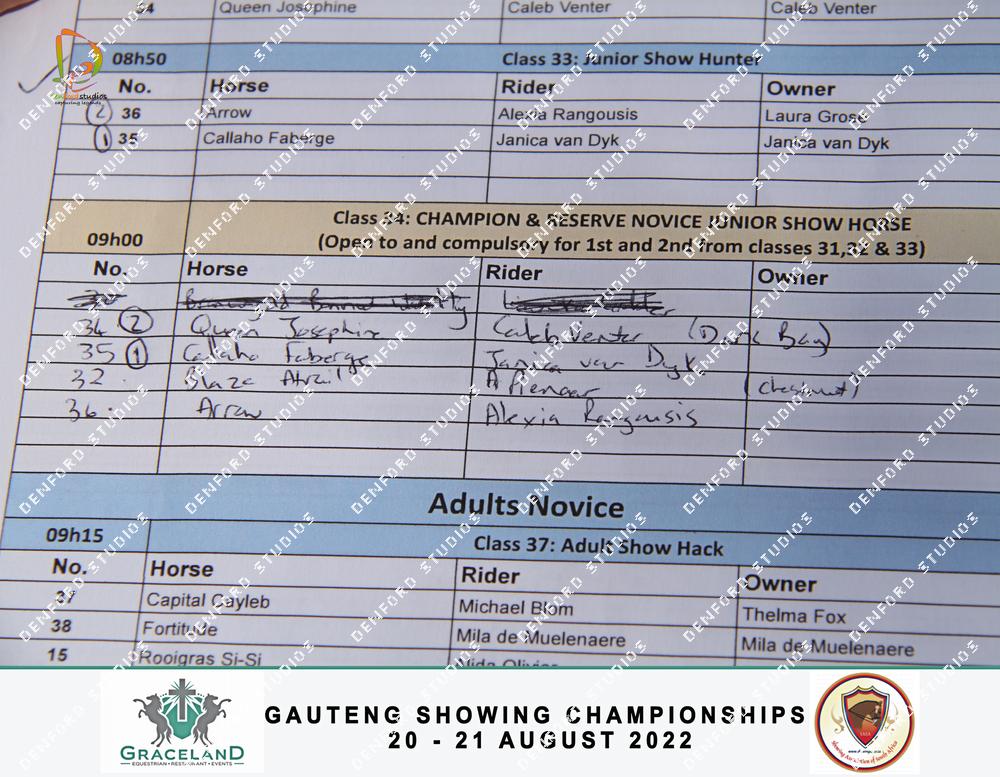 34 Queen Josephine Caleb Venter Caleb Venter
08h50 Class 33: Junior Show Hunter
No. Horse Rider Owner
2 36 Arrow Alexia Rangousis Laura Grose
1 35 Callaho Faberge Janica van Dyk Janica van Dyk
Class 34: CHAMPION & RESERVE NOVICE JUNIOR SHOW HORSE
09h00 (Open to and compulsory for 1st and 2nd from classes 31,32 & 33)
No. Horse Rider Owner
34 2 Queen Josephine Caleb Venter (Dark Bay)
35 1 Callaho Faberge Janica van Dyk
32 Blaze A Pienaar (Chesnut)
36 Arrow Alexia Rangousis
Adults Novice
09h15 Class 37: Adult Show Hack
No. Horse Rider Owner
37 Capital Cayleb Michael Blom Thelma Fox
38 Fortitude Mila de Muelenaere Mila de Muelenaere
15 Rooigras Si-Si
GRACELAND
EQUESTRIAN • RESTAURANT • EVENTS
GAUTENG SHOWING CHAMPIONSHIPS
20 - 21 AUGUST 2022
DENFORD STUDIOS